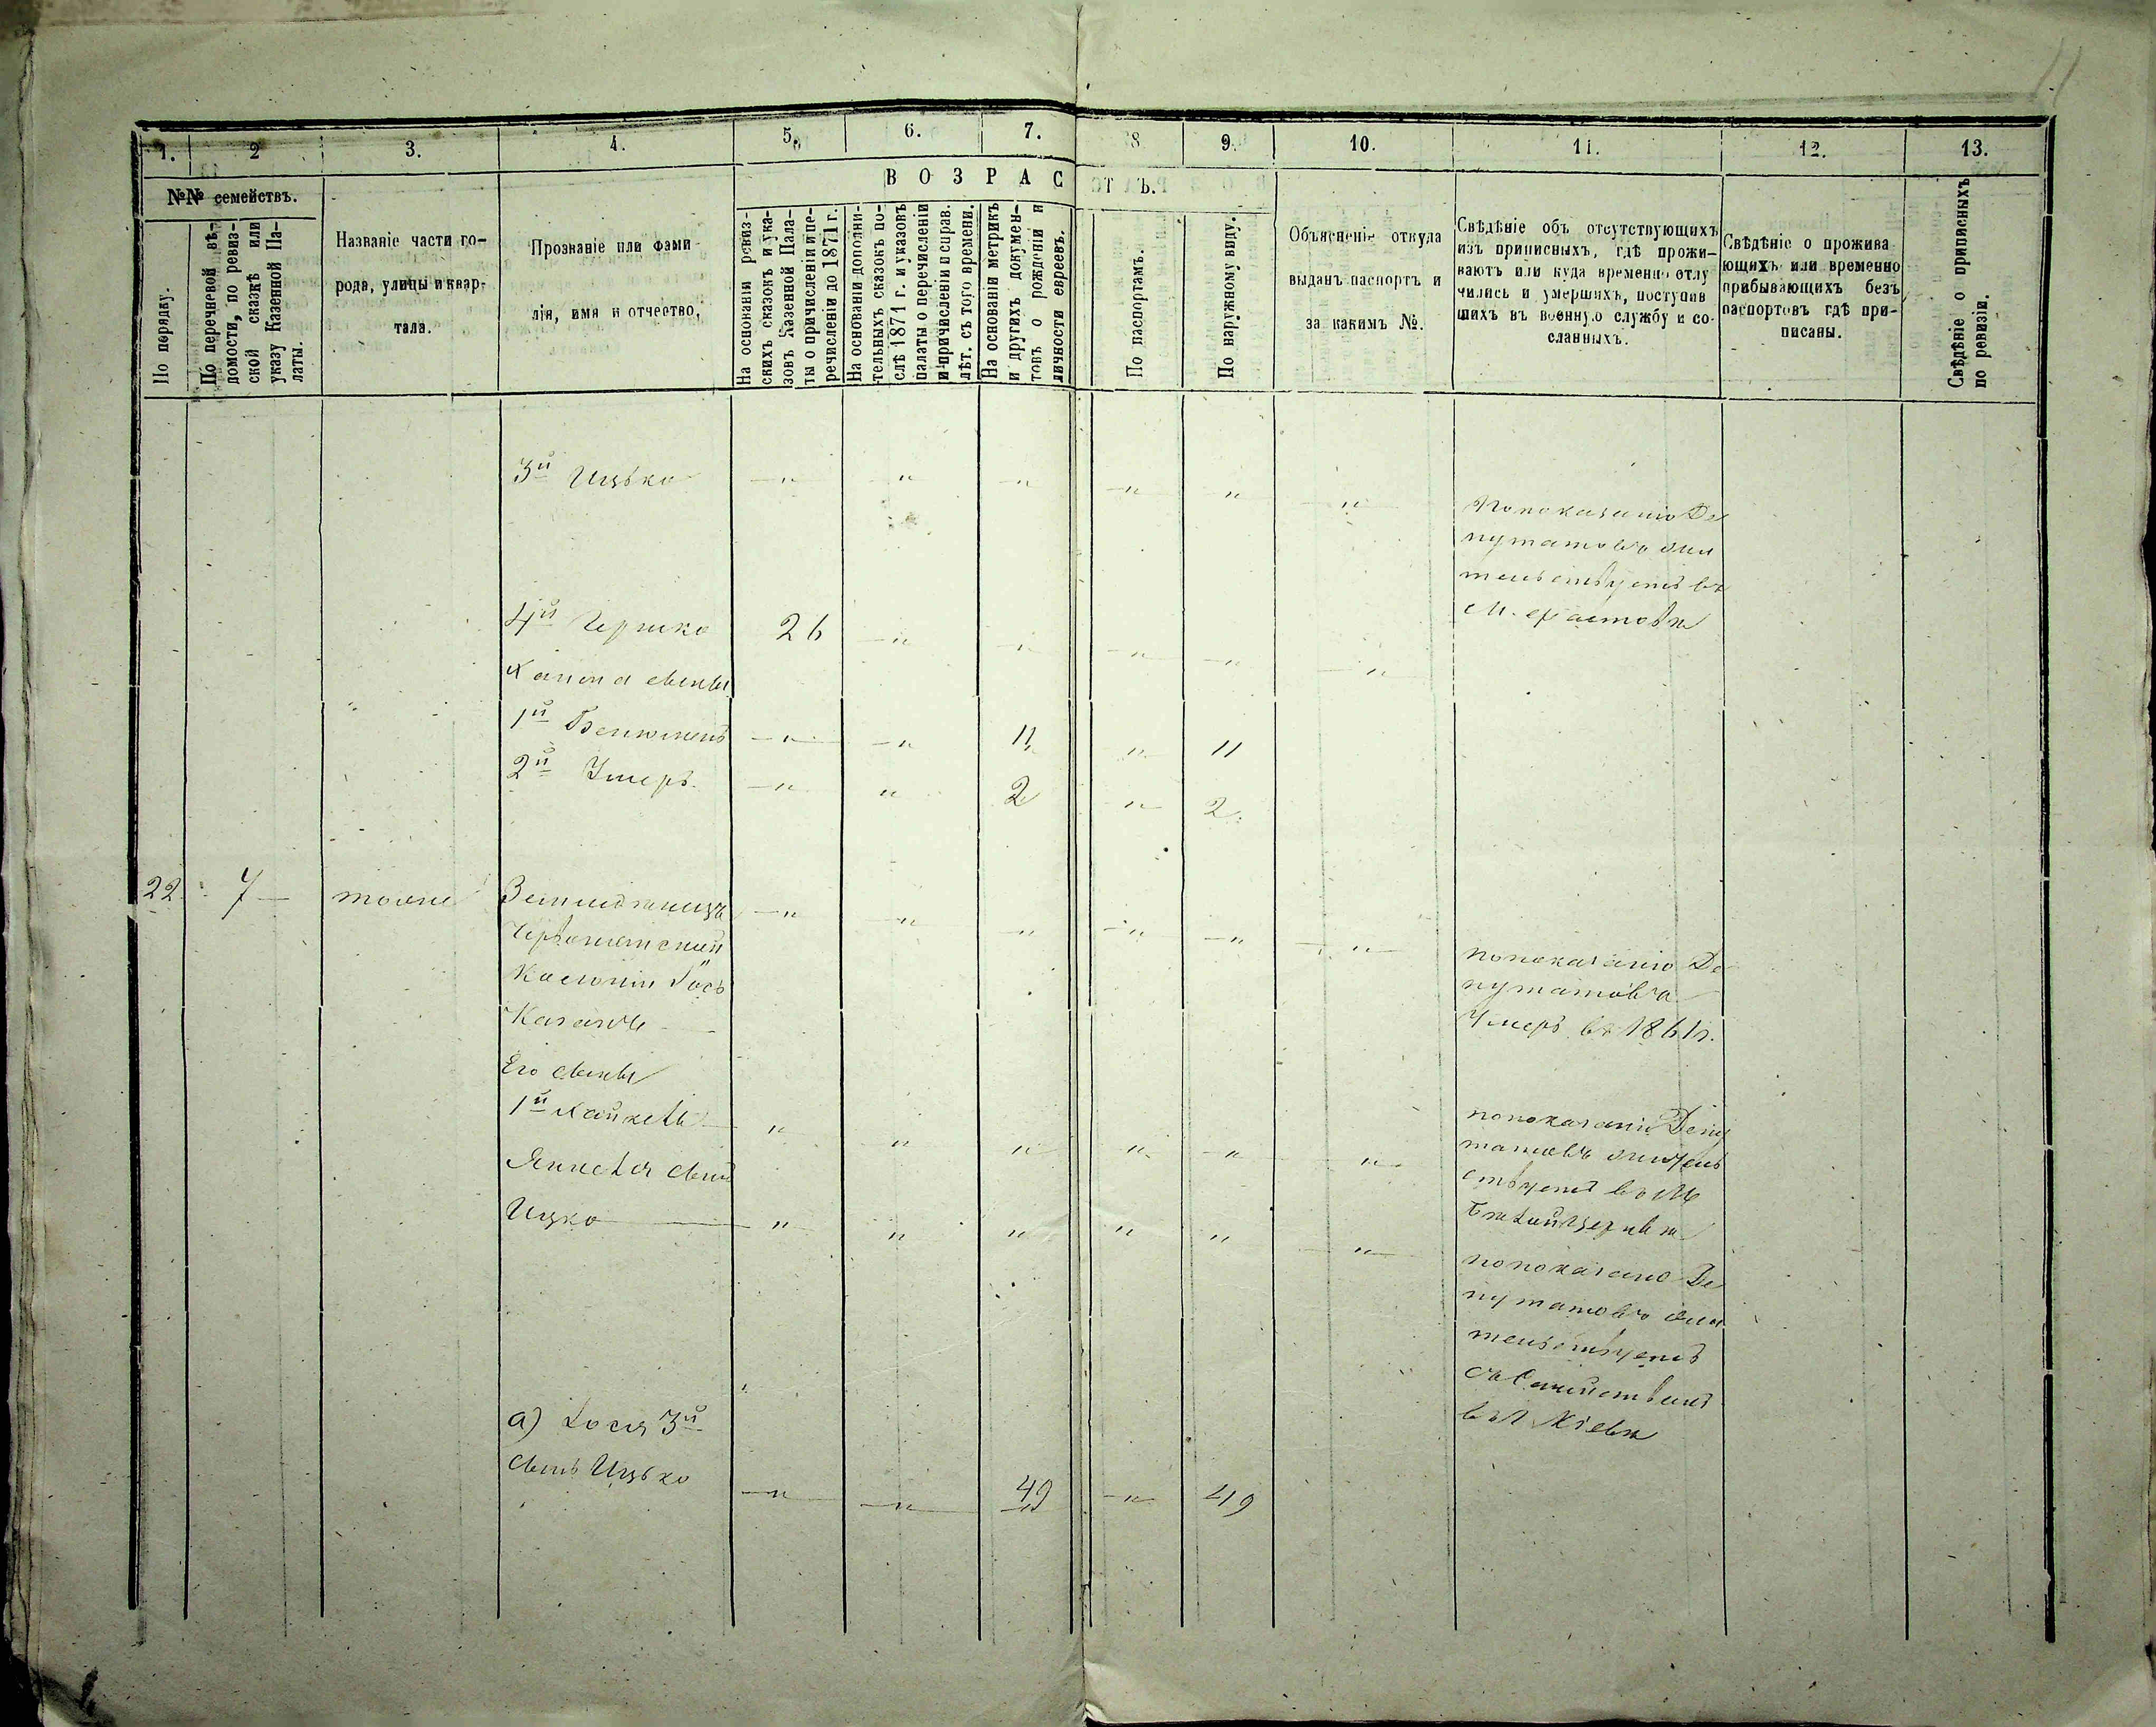 1. 2 3. 4. 5. 6. 7. 8 9. 10. 11. 12. 13.
№№ семействъ.
По порядку.
По перечневой вѣ-
домости, по ревиз-
ской сказкѣ или
указу Казенной Па-
латы.
Названіе части го-
рода, улицы и квар-
тала.
Прозваніе или фами-
лія, имя и отчество,
ВОЗРАСТЪ.
На основаніи ревиз-
скихъ сказокъ и ука-
зовъ Казенной Пала-
ты о причисленіи и пе-
речисленіи до 1871 г.
На основаніи дополни-
тельныхъ сказокъ по-
слѣ 1871 г. и указовъ
палаты о перечисленіи
и причисленіи и справ.
лѣт. съ того времени.
На основаніи метрикъ
и другихъ докумен-
товъ о рожденіи и
личности евреевъ.
По паспортамъ.
По наружному виду.
Объясненіе откуда
выданъ паспортъ и
за какимъ №.
Свѣдѣніе объ отсутствующихъ
изъ приписныхъ, гдѣ прожи-
ваютъ или куда временно отлу
чились и умершихъ, поступив
шихъ въ военную службу и со-
сланныхъ.
Свѣдѣніе о прожива
ющихъ или временно
прибывающихъ безъ
паспортовъ гдѣ при-
писаны.
Свѣдѣніе о приписныхъ
по ревизіи.
3й Ицько — " — " — " — " — " — "
По показанію Де
путатовъ жи
тельствуетъ въ
М. Фастовѣ
4й Гершко 26 — " — " — " — " — "
сыны
1й Бенюменъ — " — " 11 " 11
2й Умеръ — " " 2 " 2.
22. 7 — тоже — " — " — " — " — " — "
Колоніи Рось
Его сыны
по показанію Де
путатовъ
Умеръ въ 1861 г.
1й " " " " " "
по показанію Депу
татовъ житель
ствуетъ въ М.
Бѣлой Церквѣ
Янкеля сынъ
Ицко — " " " " " "
по показанію Де
путатовъ жи
тельствуетъ
съ Семействомъ
въ Г. Кіевѣ
а) Лося 3й
сынъ Ицько — " — " 49 — " 49